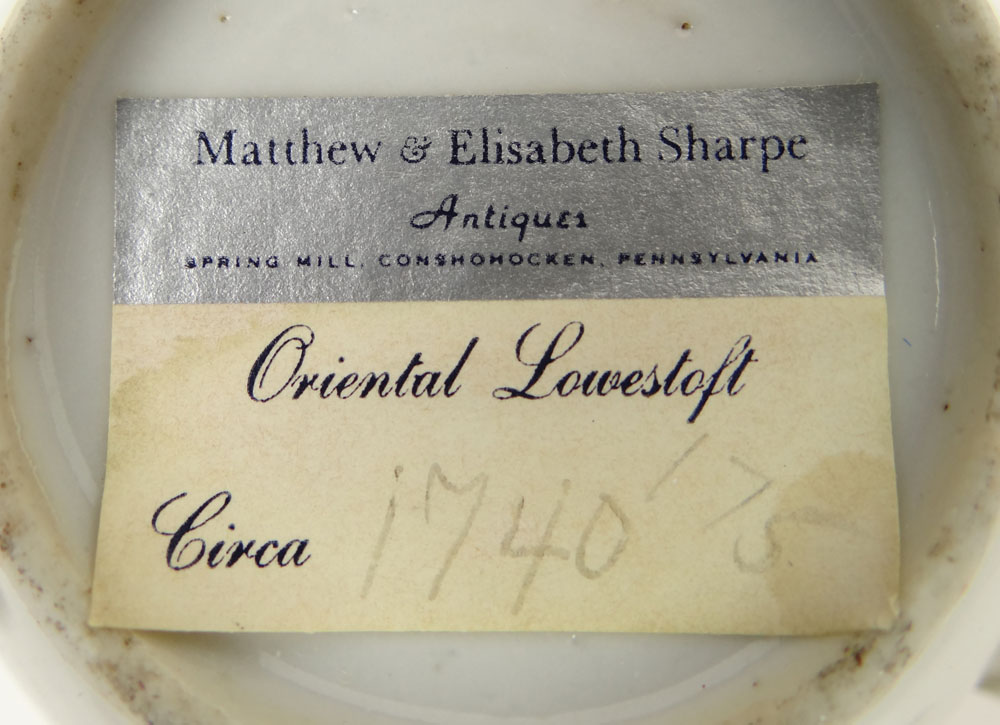 Matthew & Elisabeth Sharpe
Antiques
SPRING MILL, CONSHOHOCKEN, PENNSYLVANIA
Oriental Lowestoft
Circa 1740's